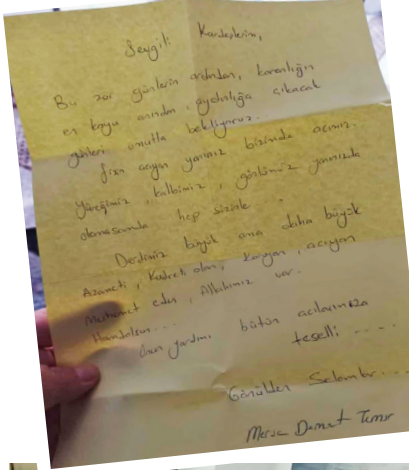 Sevgili Kardeşlerim,
Bu zor günlerin ardından, karanlığın
en koyu anından, aydınlığa çıkacak
günleri umutla bekliyoruz...
Sizin acıyan yanınız bizimde acımız..
Yüreğimiz, kalbimiz, gönlümüz yanınızda
olmasamda hep sizinle.
Derdimiz büyük ama daha büyük
Azameti, Kudreti olan, koruyan, acıyan
Merhamet eden, Allahımız var.
Hamdolsun...
Onun yardımı bütün acılarımıza
teselli ....
Gönülden Selamlar...
Merve Demet